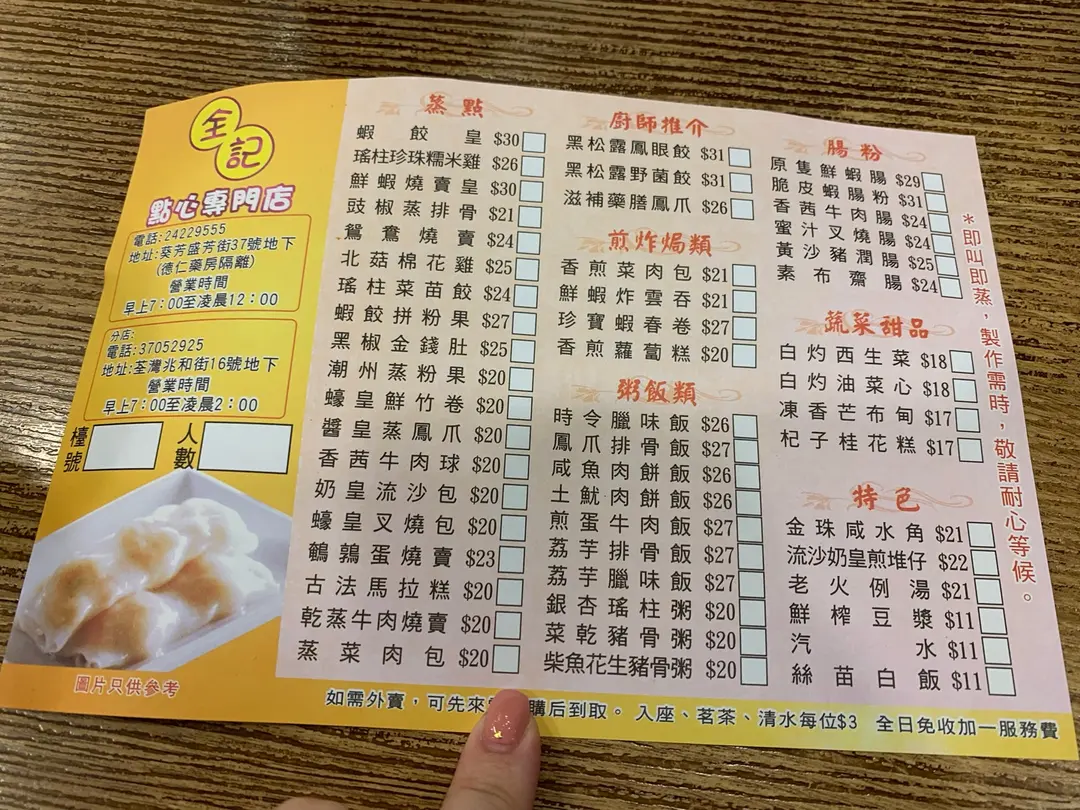 全記
點心專門店
電話:24229555
地址:葵芳盛芳街37號地下
(德仁藥房隔離)
營業時間
早上7:00至凌晨12:00
分店:
電話:37052925
地址:荃灣兆和街16號地下
營業時間
早上7:00至凌晨2:00
檯號
人數
圖片只供參考
蒸點
蝦餃皇 $30
瑤柱珍珠糯米雞 $26
鮮蝦燒賣皇 $30
豉椒蒸排骨 $21
鴛鴦燒賣 $24
北菇棉花雞 $25
瑤柱菜苗餃 $24
蝦餃拼粉果 $27
黑椒金錢肚 $25
潮州蒸粉果 $20
蠔皇鮮竹卷 $20
醬皇蒸鳳爪 $20
香茜牛肉球 $20
奶皇流沙包 $20
蠔皇叉燒包 $20
鵪鶉蛋燒賣 $23
古法馬拉糕 $20
乾蒸牛肉燒賣 $20
蒸菜肉包 $20
廚師推介
黑松露鳳眼餃 $31
黑松露野菌餃 $31
滋補藥膳鳳爪 $26
煎炸焗類
香煎菜肉包 $21
鮮蝦炸雲吞 $21
珍寶蝦春卷 $27
香煎蘿蔔糕 $20
粥飯類
時令臘味飯 $26
鳳爪排骨飯 $27
咸魚肉餅飯 $26
土魷肉餅飯 $26
煎蛋牛肉飯 $27
荔芋排骨飯 $27
荔芋臘味飯 $27
銀杏瑤柱粥 $20
菜乾豬骨粥 $20
柴魚花生豬骨粥 $20
腸粉
原隻鮮蝦腸 $29
脆皮蝦腸粉 $31
香茜牛肉腸 $24
蜜汁叉燒腸 $24
黃沙豬潤腸 $25
素布齋腸 $24
蔬菜甜品
白灼西生菜 $18
白灼油菜心 $18
凍香芒布甸 $17
杞子桂花糕 $17
特色
金珠咸水角 $21
流沙奶皇煎堆仔 $22
老火例湯 $21
鮮榨豆漿 $11
汽水 $11
絲苗白飯 $11
*即叫即蒸,製作需時,敬請耐心等候。
如需外賣,可先來 購后到取。 入座、茗茶、清水每位$3 全日免收加一服務費